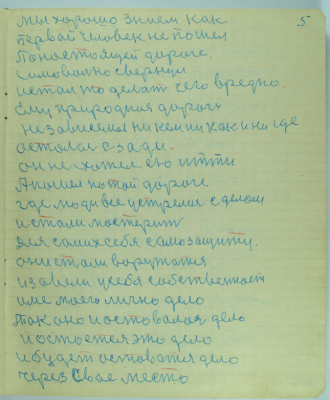 5
мы хорошо знаем как
первай человек не пошел
Понастоящей дороге.
Самоволно свернул
истал то делат чего вредно.
Ему природная дорога
независемая никем ни как и ни где
осталас сзади.
он не хотел ею итти
Апошел потой дороге
где люди все устремил с делом
истали мастерит
Для самихсебя самозащиту.
они стали воружатся
извели усебя собственост
име моего лично дело
Так оно и оставалос дело
и остается это дело
ибудет оставатся дело
через свое место